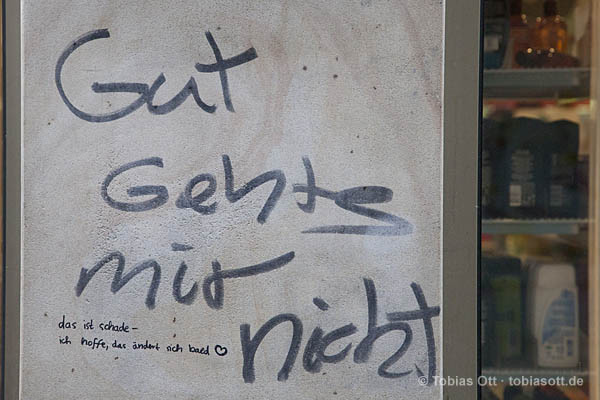 Gut
Gehts
mir
nicht
das ist schade –
ich hoffe, das ändert sich bald ♡
© Tobias Ott · tobiasott.de